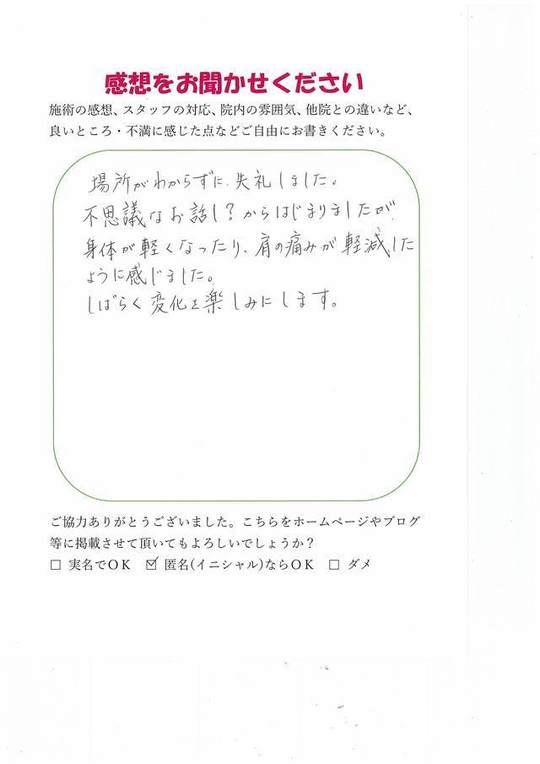 感想をお聞かせください
施術の感想、スタッフの対応、院内の雰囲気、他院との違いなど、
良いところ・不満に感じた点などご自由にお書きください。
場所がわからずに、失礼しました。
不思議なお話し?からはじまりましたが、
身体が軽くなったり、肩の痛みが軽減した
ように感じました。
しばらく変化を楽しみにします。
ご協力ありがとうございました。こちらをホームページやブログ
等に掲載させて頂いてもよろしいでしょうか?
□ 実名でOK ☑ 匿名(イニシャル)ならOK □ ダメ